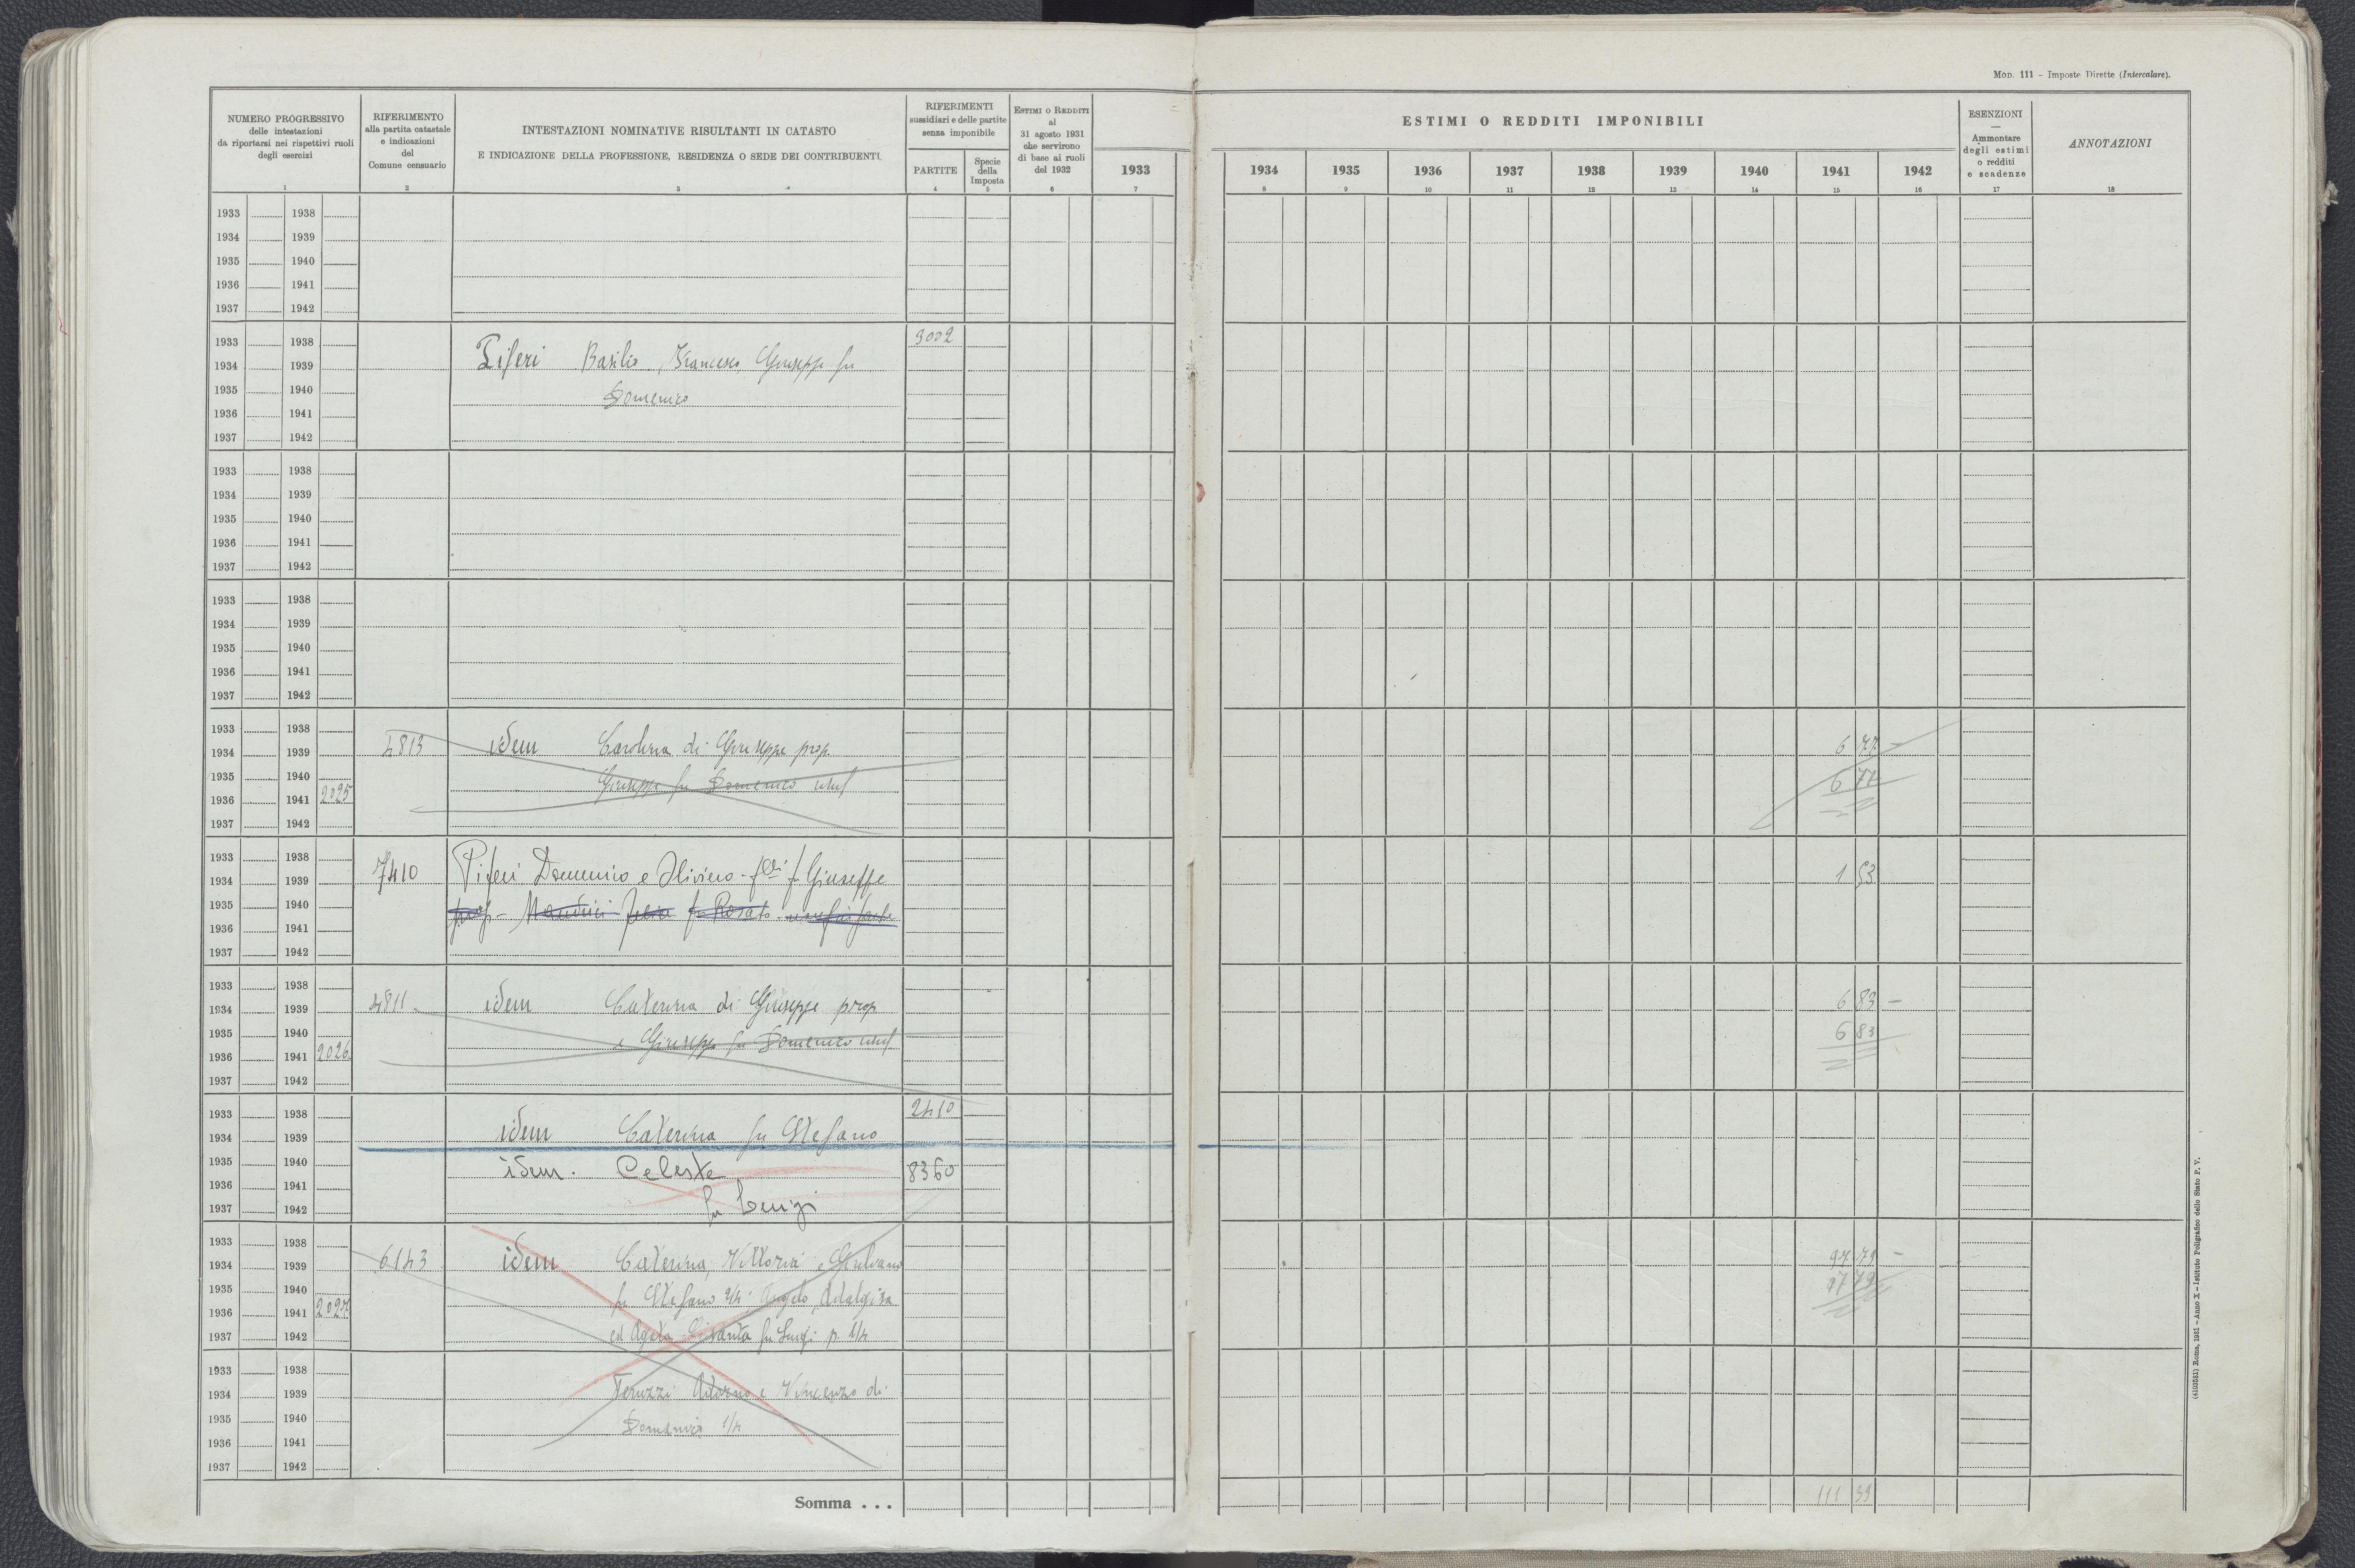 MOD. 111 – Imposte Dirette (Intercalare).
NUMERO PROGRESSIVO
delle intestazioni
da riportarsi nei rispettivi ruoli
degli esercizi
1
RIFERIMENTO
alla partita catastale
e indicazioni
del
Comune censuario
2
INTESTAZIONI NOMINATIVE RISULTANTI IN CATASTO
E INDICAZIONE DELLA PROFESSIONE, RESIDENZA O SEDE DEI CONTRIBUENTI
3
RIFERIMENTI
sussidiari e delle partite
senza imponibile
PARTITE
4
Specie
della
Imposta
5
ESTIMI O REDDITI
al
31 agosto 1931
che servirono
di base ai ruoli
del 1932
6
1933
7
ESTIMI O REDDITI IMPONIBILI
1934 1935 1936 1937 1938 1939 1940 1941 1942
8 9 10 11 12 13 14 15 16
ESENZIONI
—
Ammontare
degli estimi
o redditi
e scadenze
17
ANNOTAZIONI
18
1933 1938
1934 1939
1935 1940
1936 1941
1937 1942
1933 1938 3002
1934 1939 Piferi Basilio, Francesco, Giuseppe fu
1935 1940 Domenico
1936 1941
1937 1942
1933 1938
1934 1939
1935 1940
1936 1941
1937 1942
1933 1938
1934 1939
1935 1940
1936 1941
1937 1942
1933 1938
1934 1939 4813 idem Carolina di Giuseppe prop. 6 77 –
1935 1940 Giuseppe fu Domenico usuf 6 77
1936 1941 2025
1937 1942
1933 1938
1934 1939 7410 Piferi Domenico e Oliviero flli fu Giuseppe 1 53
1935 1940 prop – fu Rosato
1936 1941
1937 1942
1933 1938
1934 1939 4811 idem Caterina di Giuseppe prop 6 83 –
1935 1940 e Giuseppe fu Domenico usuf 6 83
1936 1941 2026
1937 1942
1933 1938 2410
1934 1939 idem Caterina fu Stefano
1935 1940 idem. Celeste 8360
1936 1941
1937 1942 fu Luigi
1933 1938
1934 1939 6143 idem Caterina, Vittoria e 97 79 –
1935 1940 fu Stefano 2/4 Angelo, Adalgisa 97 79
1936 1941 2027
1937 1942 ed Agata fu Luigi p. 1/4
1933 1938
1934 1939 e Vincenzo di
1935 1940 Domenico 1/4
1936 1941
1937 1942
Somma . . . 111
(4103551) Roma, 1931 – Anno X – Istituto Poligrafico dello Stato P. V.